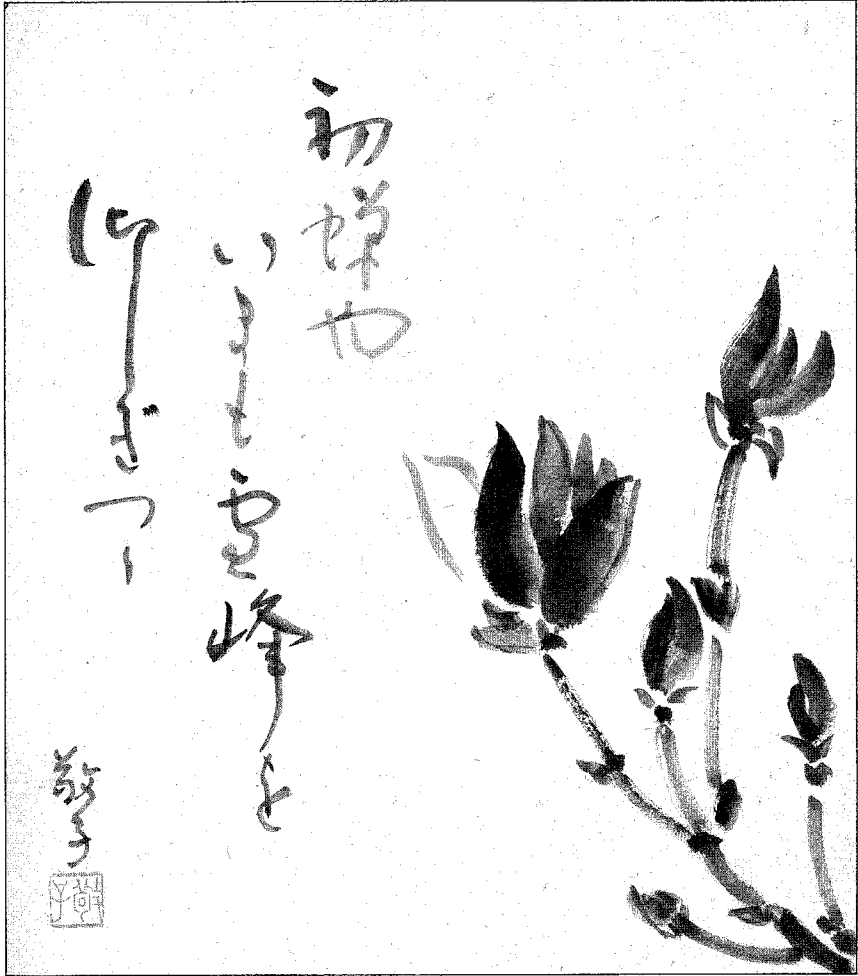 初蝉や
いまも雪峰を
仰ぎつゝ
敬子